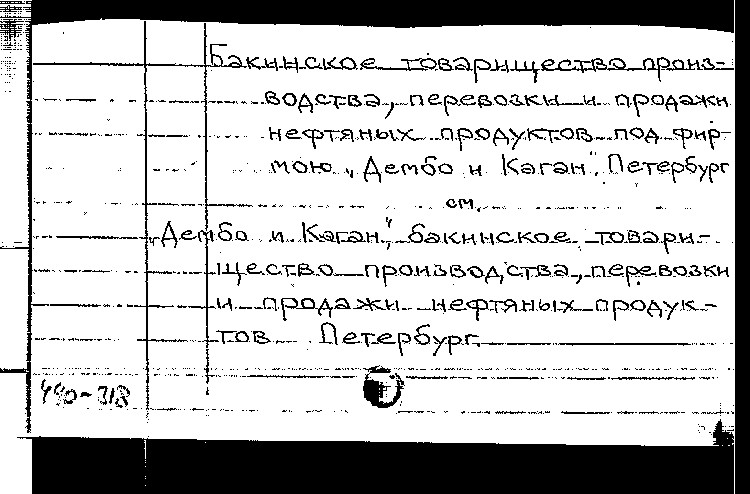 Бакинское товарищество произ-
водства, перевозки и продажи
нефтяных продуктов под фир-
мою „Дембо и Каган". Петербург
см.
„Дембо и Каган", бакинское товари-
щество производства, перевозки
и продажи нефтяных продук-
тов Петербург.
440-318